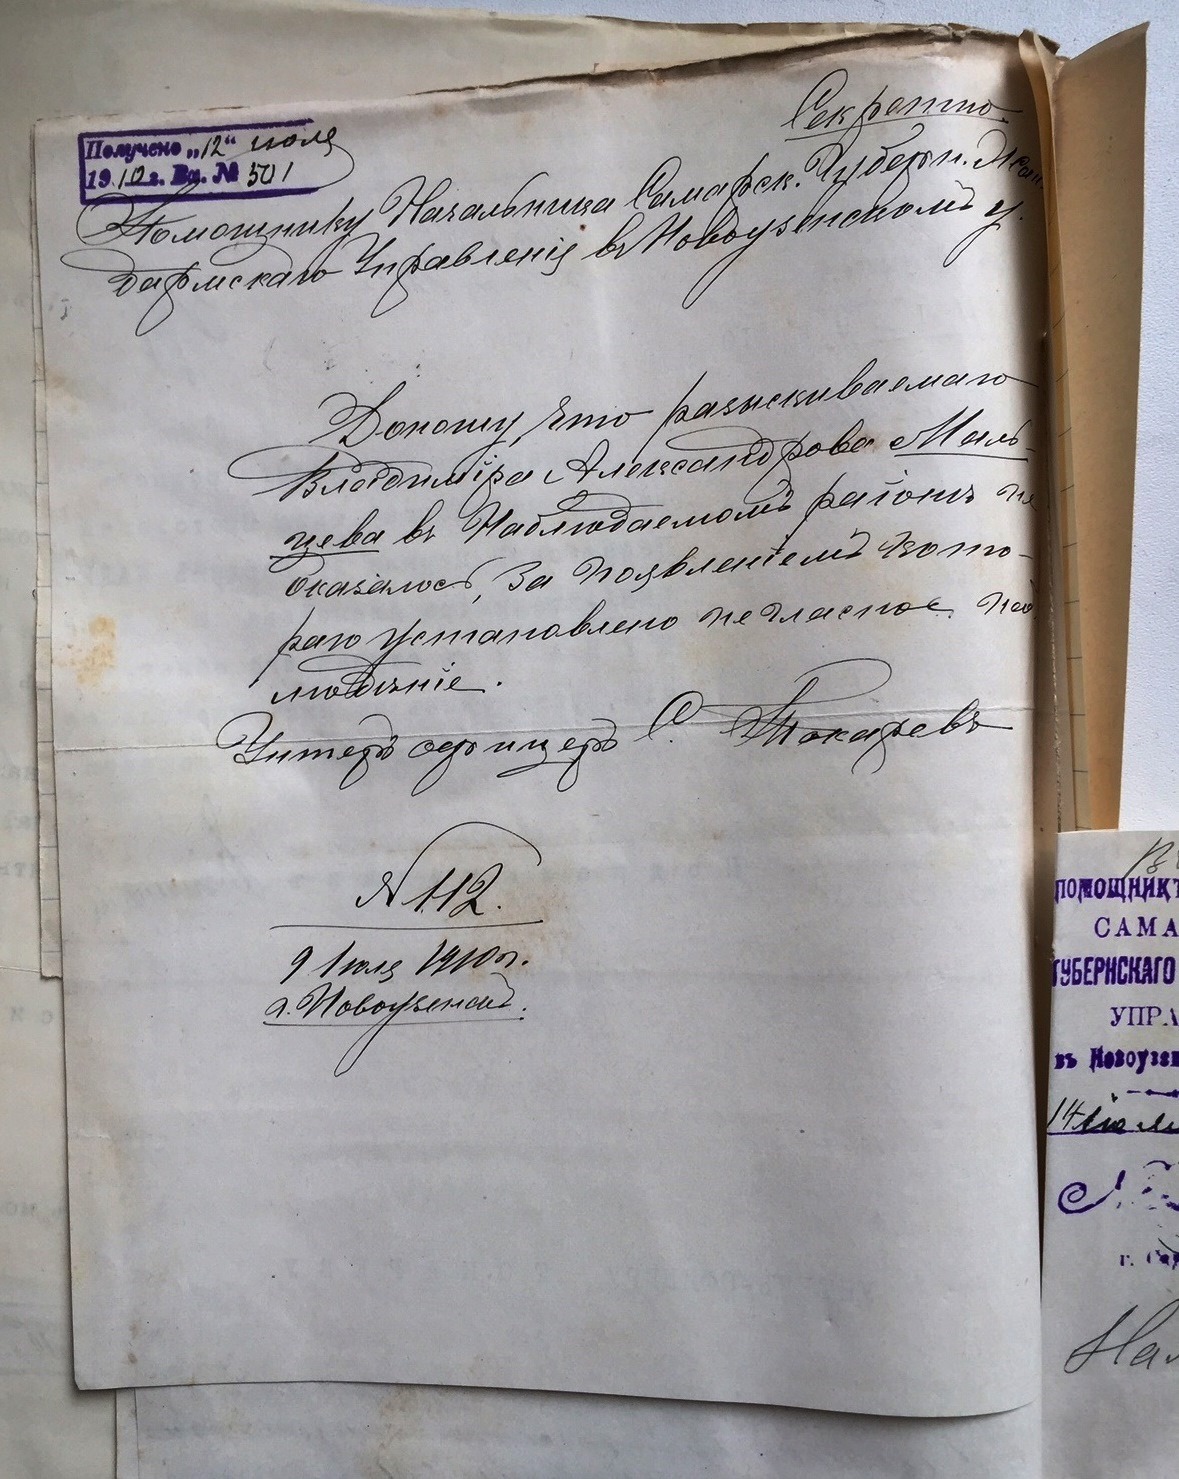 Секретно
Получено „12“ июля
1910 г. Вх. № 501
Помощнику Начальника Самарск. Губерн. Жан-
дармскаго Управленія въ Новоузенскомъ у.
Доношу, что разыскиваемаго
Владиміра Александрова Маль-
цева въ Наблюдаемомъ районѣ не
оказалось, За появленіемъ кото-
раго установлено негласное наб
людѣніе.
Унтеръ офицеръ С. Токаревъ
№ 112.
9 Іюля 1910 г.
г. Новоузенскъ.
ПОМОЩНИКЪ
САМА
ГУБЕРНСКАГО
УПРА
въ Новоузен
14 Іюля
г.